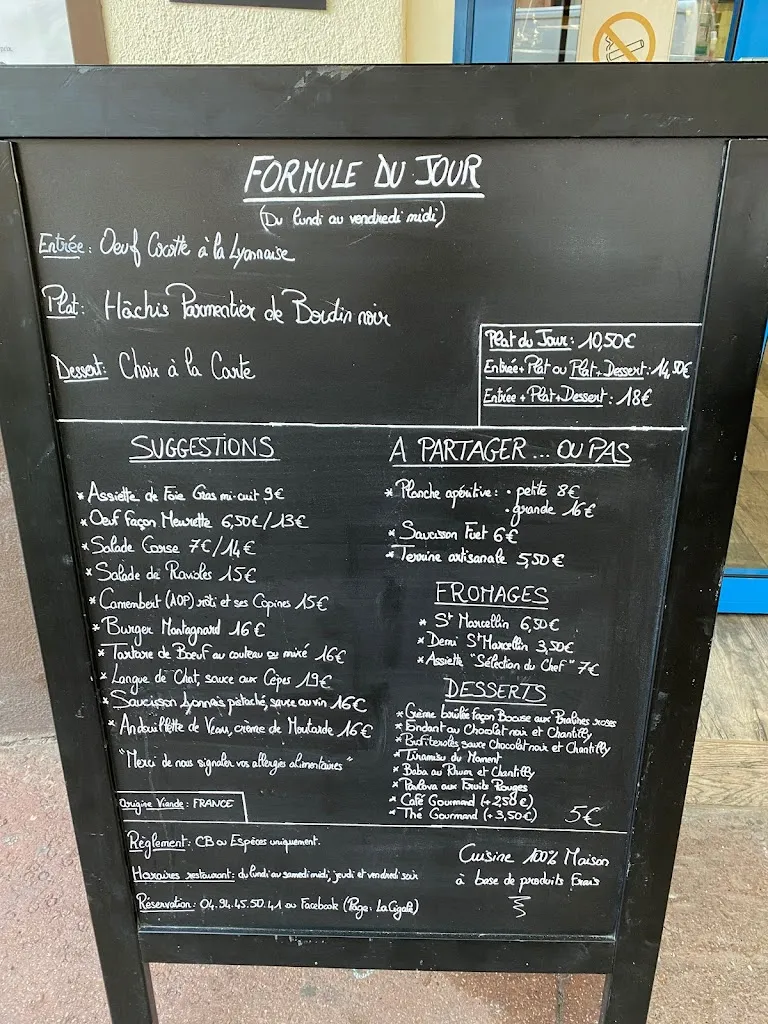 FORMULE DU JOUR
(Du lundi au vendredi midi)
Entrée : Oeuf Cocotte à la Lyonnaise
Plat : Hâchis Parmentier de Boudin noir
Dessert : Choix à la Carte
Plat du Jour : 10,50€
Entrée + Plat ou Plat + Dessert : 14,50€
Entrée + Plat + Dessert : 18€
SUGGESTIONS
* Assiette de Foie Gras mi-cuit 9€
* Oeuf façon Meurette 6,50€/13€
* Salade Corse 7€/14€
* Salade de Ravioles 15€
* Camembert (AOP) rôti et ses Copines 15€
* Burger Montagnard 16€
* Tartare de Boeuf au couteau ou mixé 16€
* Langue de Chat, sauce aux Cèpes 19€
* Saucisson Lyonnais pistaché, sauce au vin 16€
* Andouillette de Veau, crème de Moutarde 16€
"Merci de nous signaler vos allergies alimentaires"
Origine Viande : FRANCE
A PARTAGER ... OU PAS
* Planche apéritive : • petite 8€
• grande 16€
* Saucisson Fuet 6€
* Terrine artisanale 5,50€
FROMAGES
* St Marcellin 6,50€
* Demi St Marcellin 3,50€
* Assiette "Sélection du Chef" 7€
DESSERTS
* Crème brûlée façon Bocuse aux Pralines roses
* Fondant au Chocolat noir et Chantilly
* Profiteroles sauce Chocolat noir et Chantilly
* Tiramisu du Moment
* Baba au Rhum et Chantilly
* Pavlova aux Fruits Rouges
* Café Gourmand (+ 2,50€)
* Thé Gourmand (+ 3,50€) 5€
Règlement : CB ou Espèces uniquement.
Horaires restaurant : du lundi au samedi midi, jeudi et vendredi soir
Réservation : 04.94.45.50.41 ou Facebook (Page : La Cigale)
Cuisine 100% Maison
à base de produits Frais